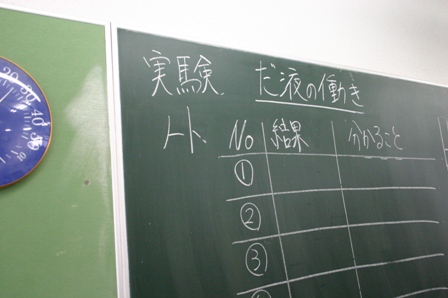 実験 だ液の働き
No 結果 分かること
①
②
③